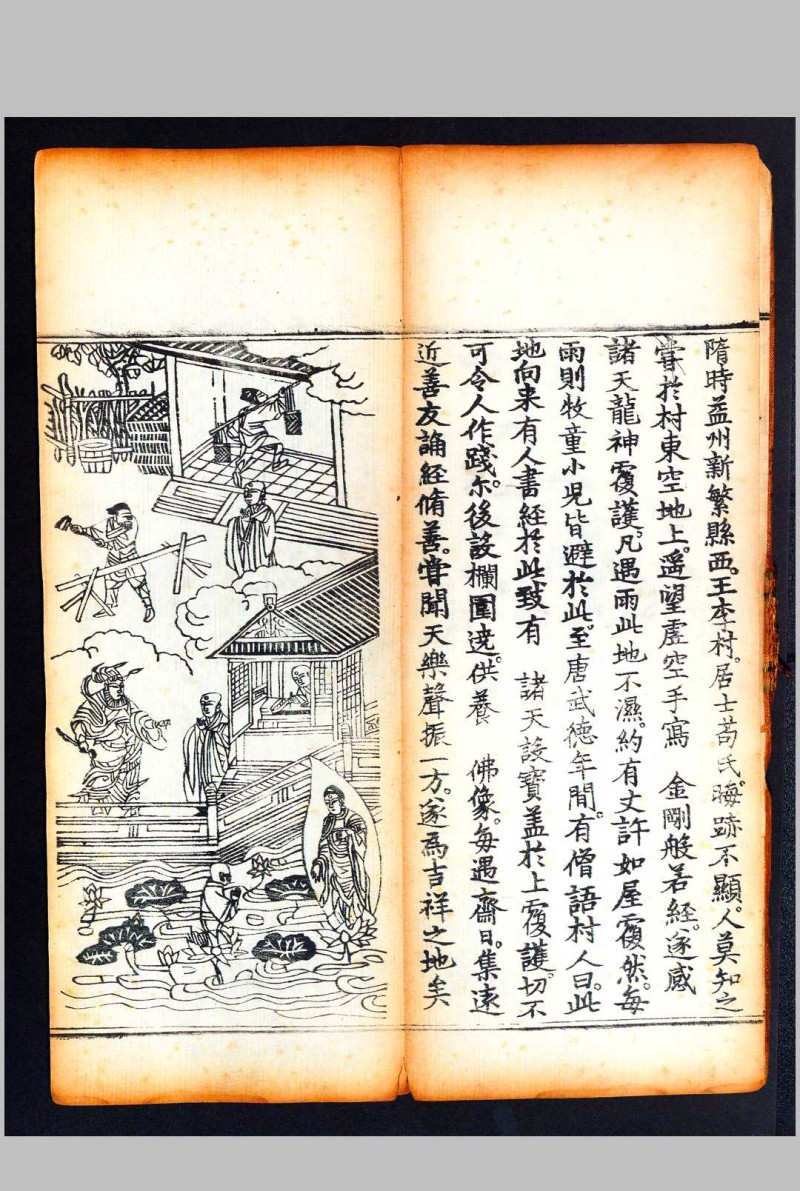 隋時益州新繁縣西。王李村。居士苟氏。晦跡不顯。人莫知之
嘗於村東空地上。遥望虛空手寫　金剛般若經。遂感
諸天龍神覆護。凡遇雨此地不濕。約有丈許如屋覆然。每
雨則牧童小児皆避於此。至唐武德年間。有僧語村人曰。此
地向来有人書經於此致有　諸天設寶盖於上覆護。切不
可令人作踐。尓後設欄圍遶。供養　佛像。每遇齋日。集遠
近善友誦經脩善。嘗聞天樂聲振一方。遂爲吉祥之地矣